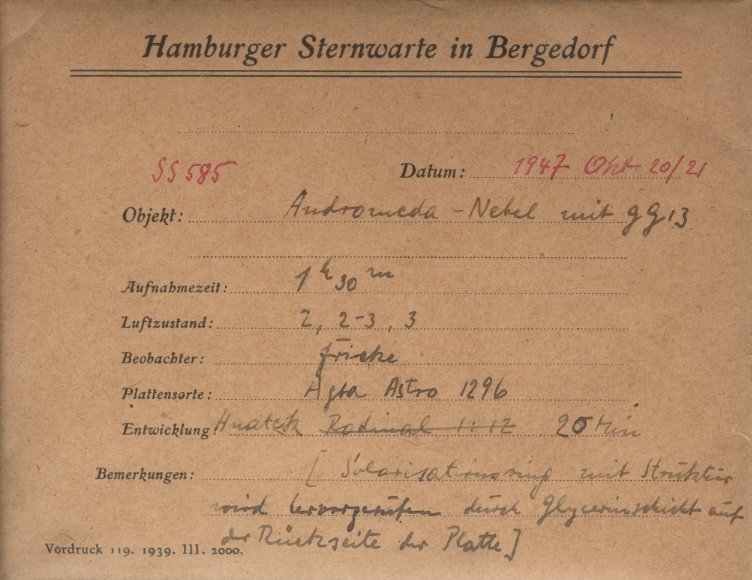 Hamburger Sternwarte in Bergedorf
SS 585 Datum: 1947 Okt 20/21
Objekt: Andromeda-Nebel mit GG 13
Aufnahmezeit: 1 h 30 m
Luftzustand: 2, 2-3, 3
Beobachter: Fricke
Plattensorte: Agfa Astro 1296
Entwicklung: Rodinal 1:12 20 Min
Bemerkungen: [Solarisationsring mit Struktur
wird hervorgerufen durch Glycerinschicht auf
der Rückseite der Platte]
Vordruck 119. 1939. III. 2000.